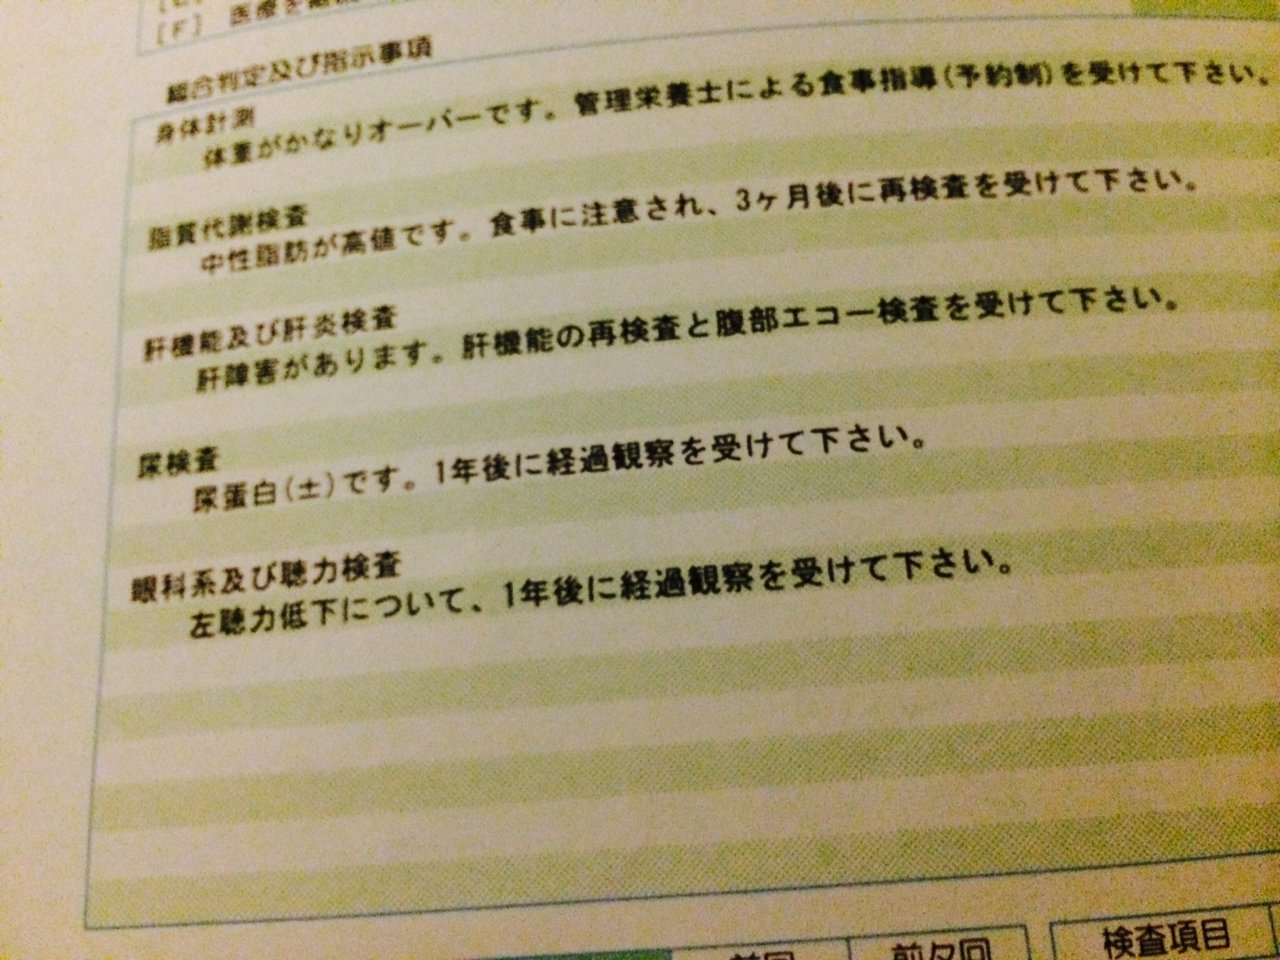 [F] 医療を
総合判定及び指示事項
身体計測
体重がかなりオーバーです。管理栄養士による食事指導(予約制)を受けて下さい。
脂質代謝検査
中性脂肪が高値です。食事に注意され、3ヶ月後に再検査を受けて下さい。
肝機能及び肝炎検査
肝障害があります。肝機能の再検査と腹部エコー検査を受けて下さい。
尿検査
尿蛋白(±)です。1年後に経過観察を受けて下さい。
眼科系及び聴力検査
左聴力低下について、1年後に経過観察を受けて下さい。
前回 前々回 検査項目